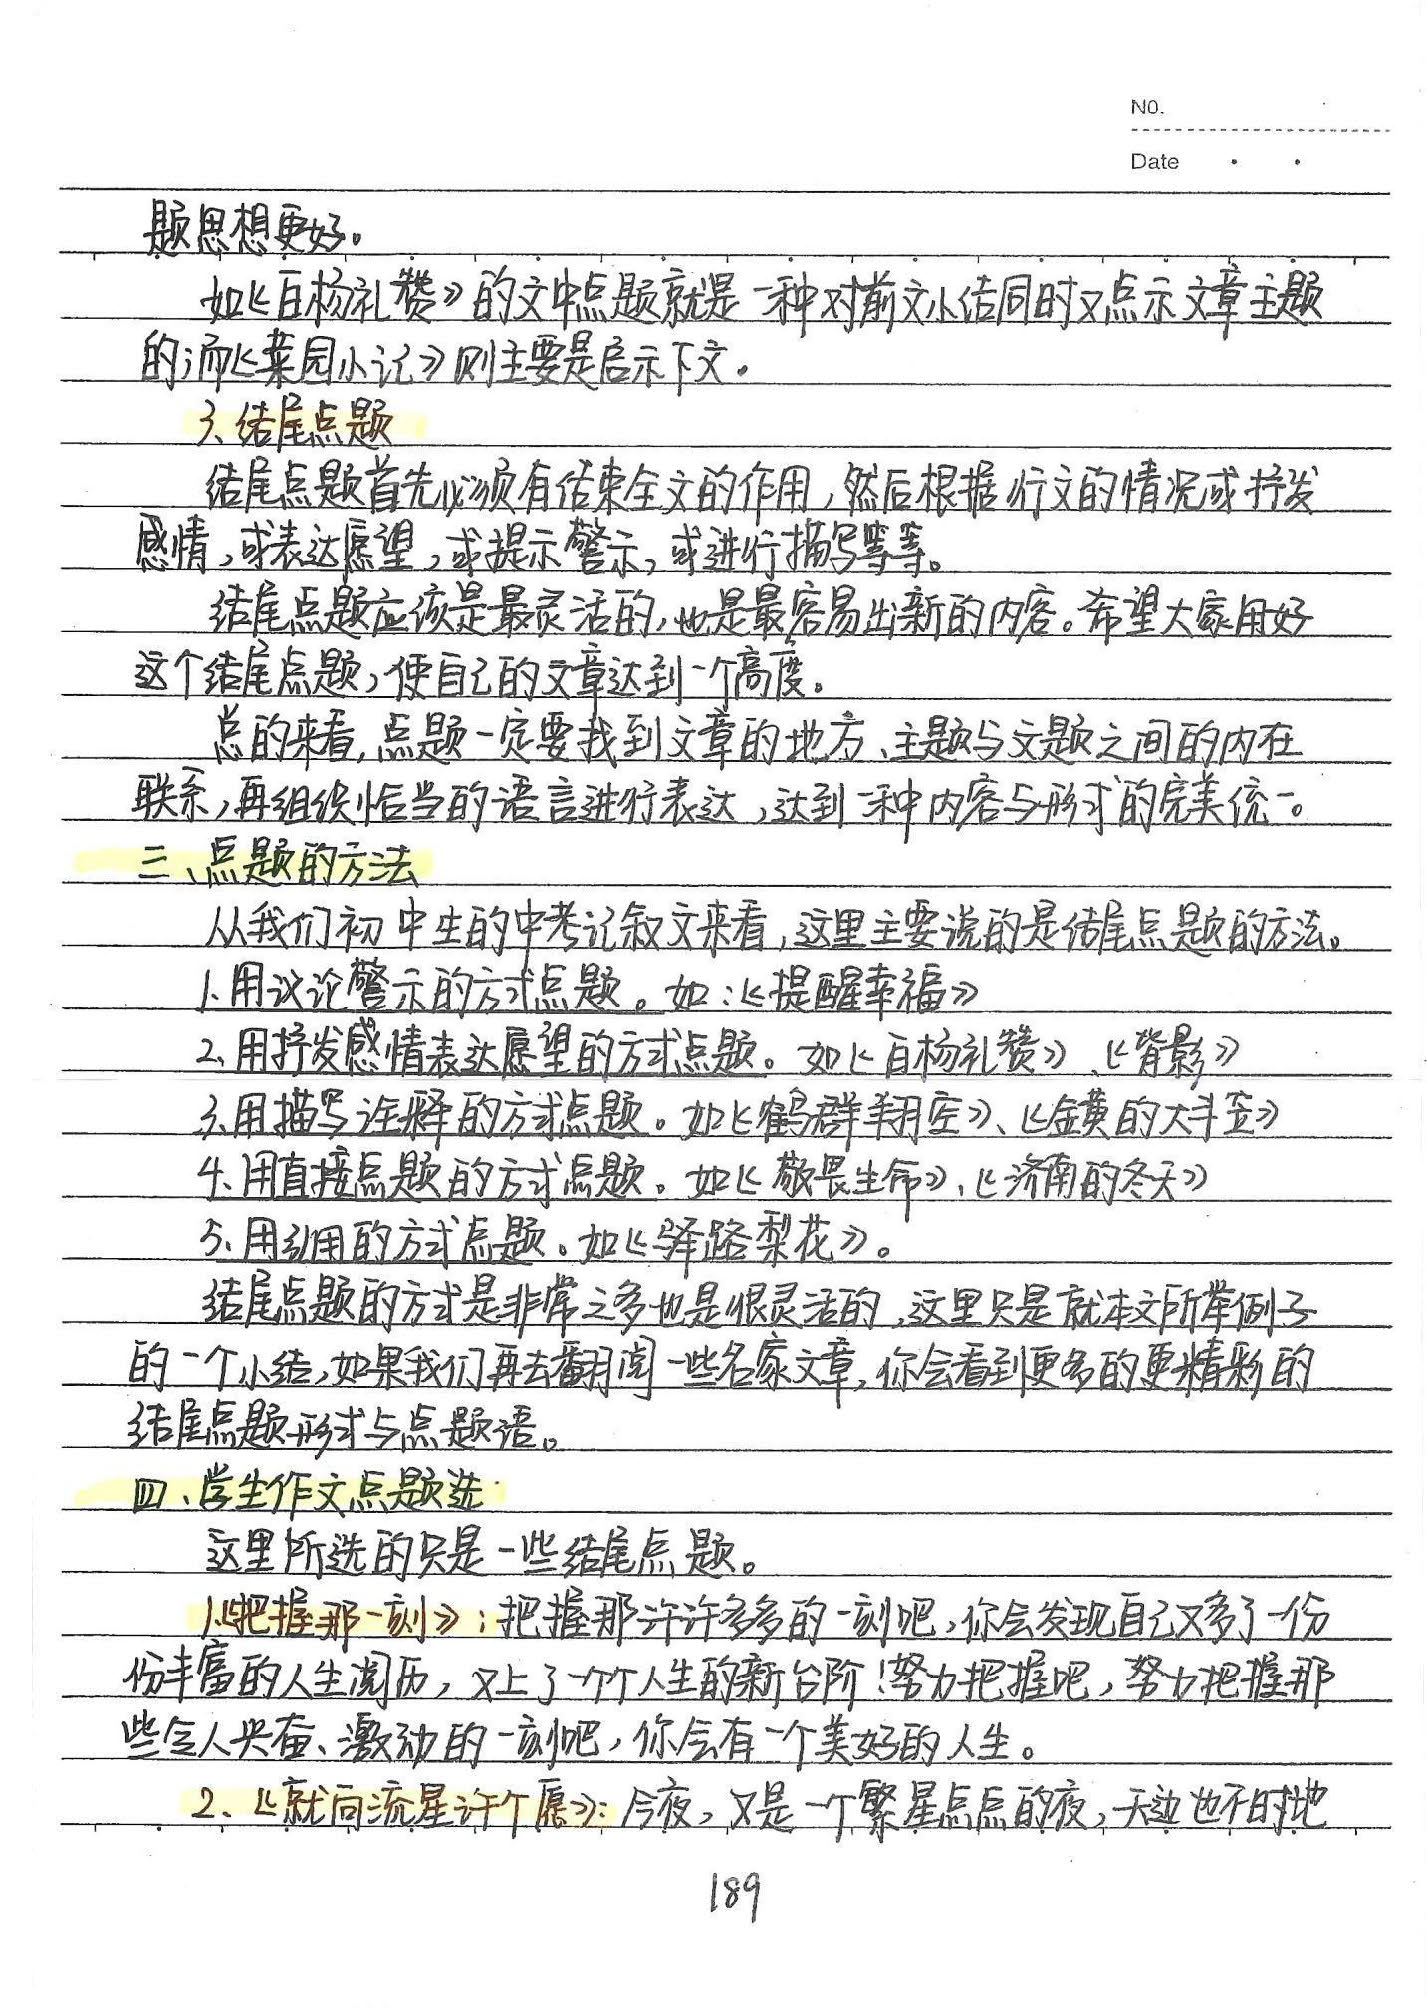 NO.
Date
题思想更好。
如《白杨礼赞》的文中点题就是一种对前文小结同时又点示文章主题
的；而《菜园小记》则主要是启示下文。
3、结尾点题
结尾点题首先必须有结束全文的作用，然后根据行文的情况或抒发
感情，或表达愿望，或提示警示，或进行描写等等。
结尾点题应该是最灵活的，也是最容易出新的内容。希望大家用好
这个结尾点题，使自己的文章达到一个高度。
总的来看，点题一定要找到文章的地方、主题与文题之间的内在
联系，再组织恰当的语言进行表达，达到一种内容与形式的完美统一。
三、点题的方法
从我们初中生的中考记叙文来看，这里主要说的是结尾点题的方法。
1、用议论警示的方式点题。如：《提醒幸福》
2、用抒发感情表达愿望的方式点题。如《白杨礼赞》、《背影》
3、用描写诠释的方式点题。如《鹤群翔空》、《金黄的大斗笠》
4、用直接点题的方式点题。如《敬畏生命》、《济南的冬天》
5、用引用的方式点题。如《驿路梨花》。
结尾点题的方式是非常之多也是很灵活的，这里只是就本文所举例子
的一个小结，如果我们再去翻阅一些名家文章，你会看到更多的更精彩的
结尾点题形式与点题语。
四、学生作文点题选
这里所选的只是一些结尾点题。
1.《把握那一刻》：把握那许许多多的一刻吧，你会发现自己又多了一份
份丰富的人生阅历，又上了一个个人生的新台阶！努力把握吧，努力把握那
些令人兴奋、激动的一刻吧，你会有一个美好的人生。
2、《就向流星许个愿》：今夜，又是一个繁星点点的夜，天边也不时地
189